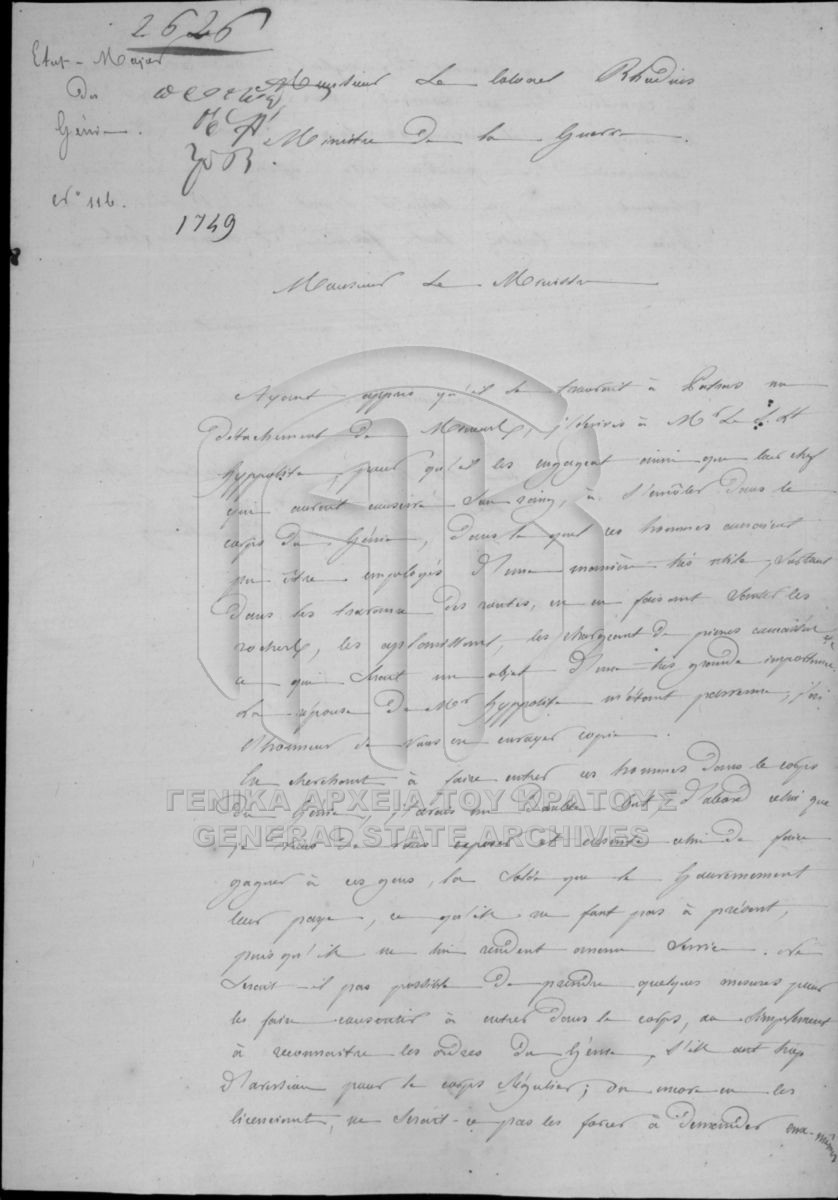 2626
Etat-Major
du
Génie.
N° 116.
1749
Monsieur Le Colonel Rhodius
Ministre de la Guerre.
Monsieur Le Ministre
Ayant appris qu'il se trouvait à Patras un
détachement de Mineurs, j'écrivis à Mr Le S. Lt
hyppolite, pour qu'il les engageat ainsi que leur chef
qui aurait conservé son rang, à s'enrôler dans le
corps du Génie, dans le quel ces hommes auraient
pu être employés d'une manière très utile, surtout
dans les travaux des routes, en en faisant sauter les
rochers, les applanissant, les chargeant de pierres concassées
ce qui serait un objet d'une très grande importance.
La réponse de Mr hyppolite m'étant parvenue, j'ai
l'honneur de vous en envoyer copie.
En cherchant à faire entrer ces hommes dans le corps
du Génie, j'avais un double but, d'abord celui que
je viens de vous exposer et ensuite celui de faire
gagner à ces gens, la solde que le Gouvernement
leur paye, ce qu'ils ne font pas à présent,
puisqu'ils ne lui rendent aucun service. Ne
serait-il pas possible de prendre quelques mesures pour
les faire consentir à entrer dans le corps, ou simplement
à reconnaitre les ordres du Génie, s'ils ont trop
d'aversion pour le corps Régulier; ou encore en les
licenciant, ne serait-ce pas les forcer à demander eux-mêmes
ΓΕΝΙΚΑ ΑΡΧΕΙΑ ΤΟΥ ΚΡΑΤΟΥΣ
GENERAL STATE ARCHIVES